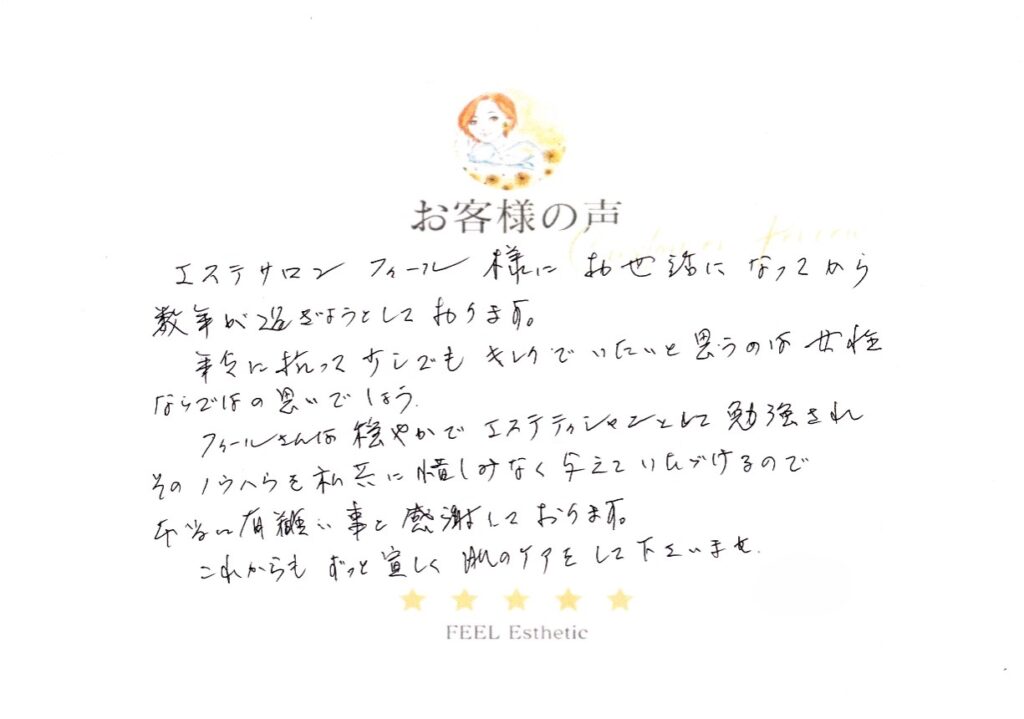 お客様の声
エステサロン フィール 様に お世話に なってから
数年が過ぎようとして おります。
年令に抗って 少しでも キレイで いたいと 思うのは 女性
ならではの 思いでしょう.
フィールさんは 穏やかで エステティシャンとして 勉強され
そのノウハウを 私共に 惜しみなく 与えて いただけるので
本当に有難い事と 感謝して おります。
これからも ずっと 宜しく 肌のケアを して下さいませ.
★★★★★
FEEL Esthetic